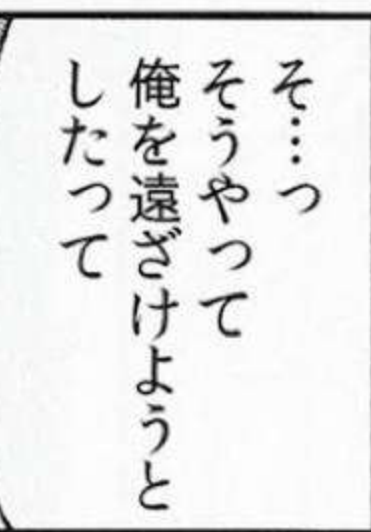 そ…っ
そうやって
俺を遠ざけようと
したって